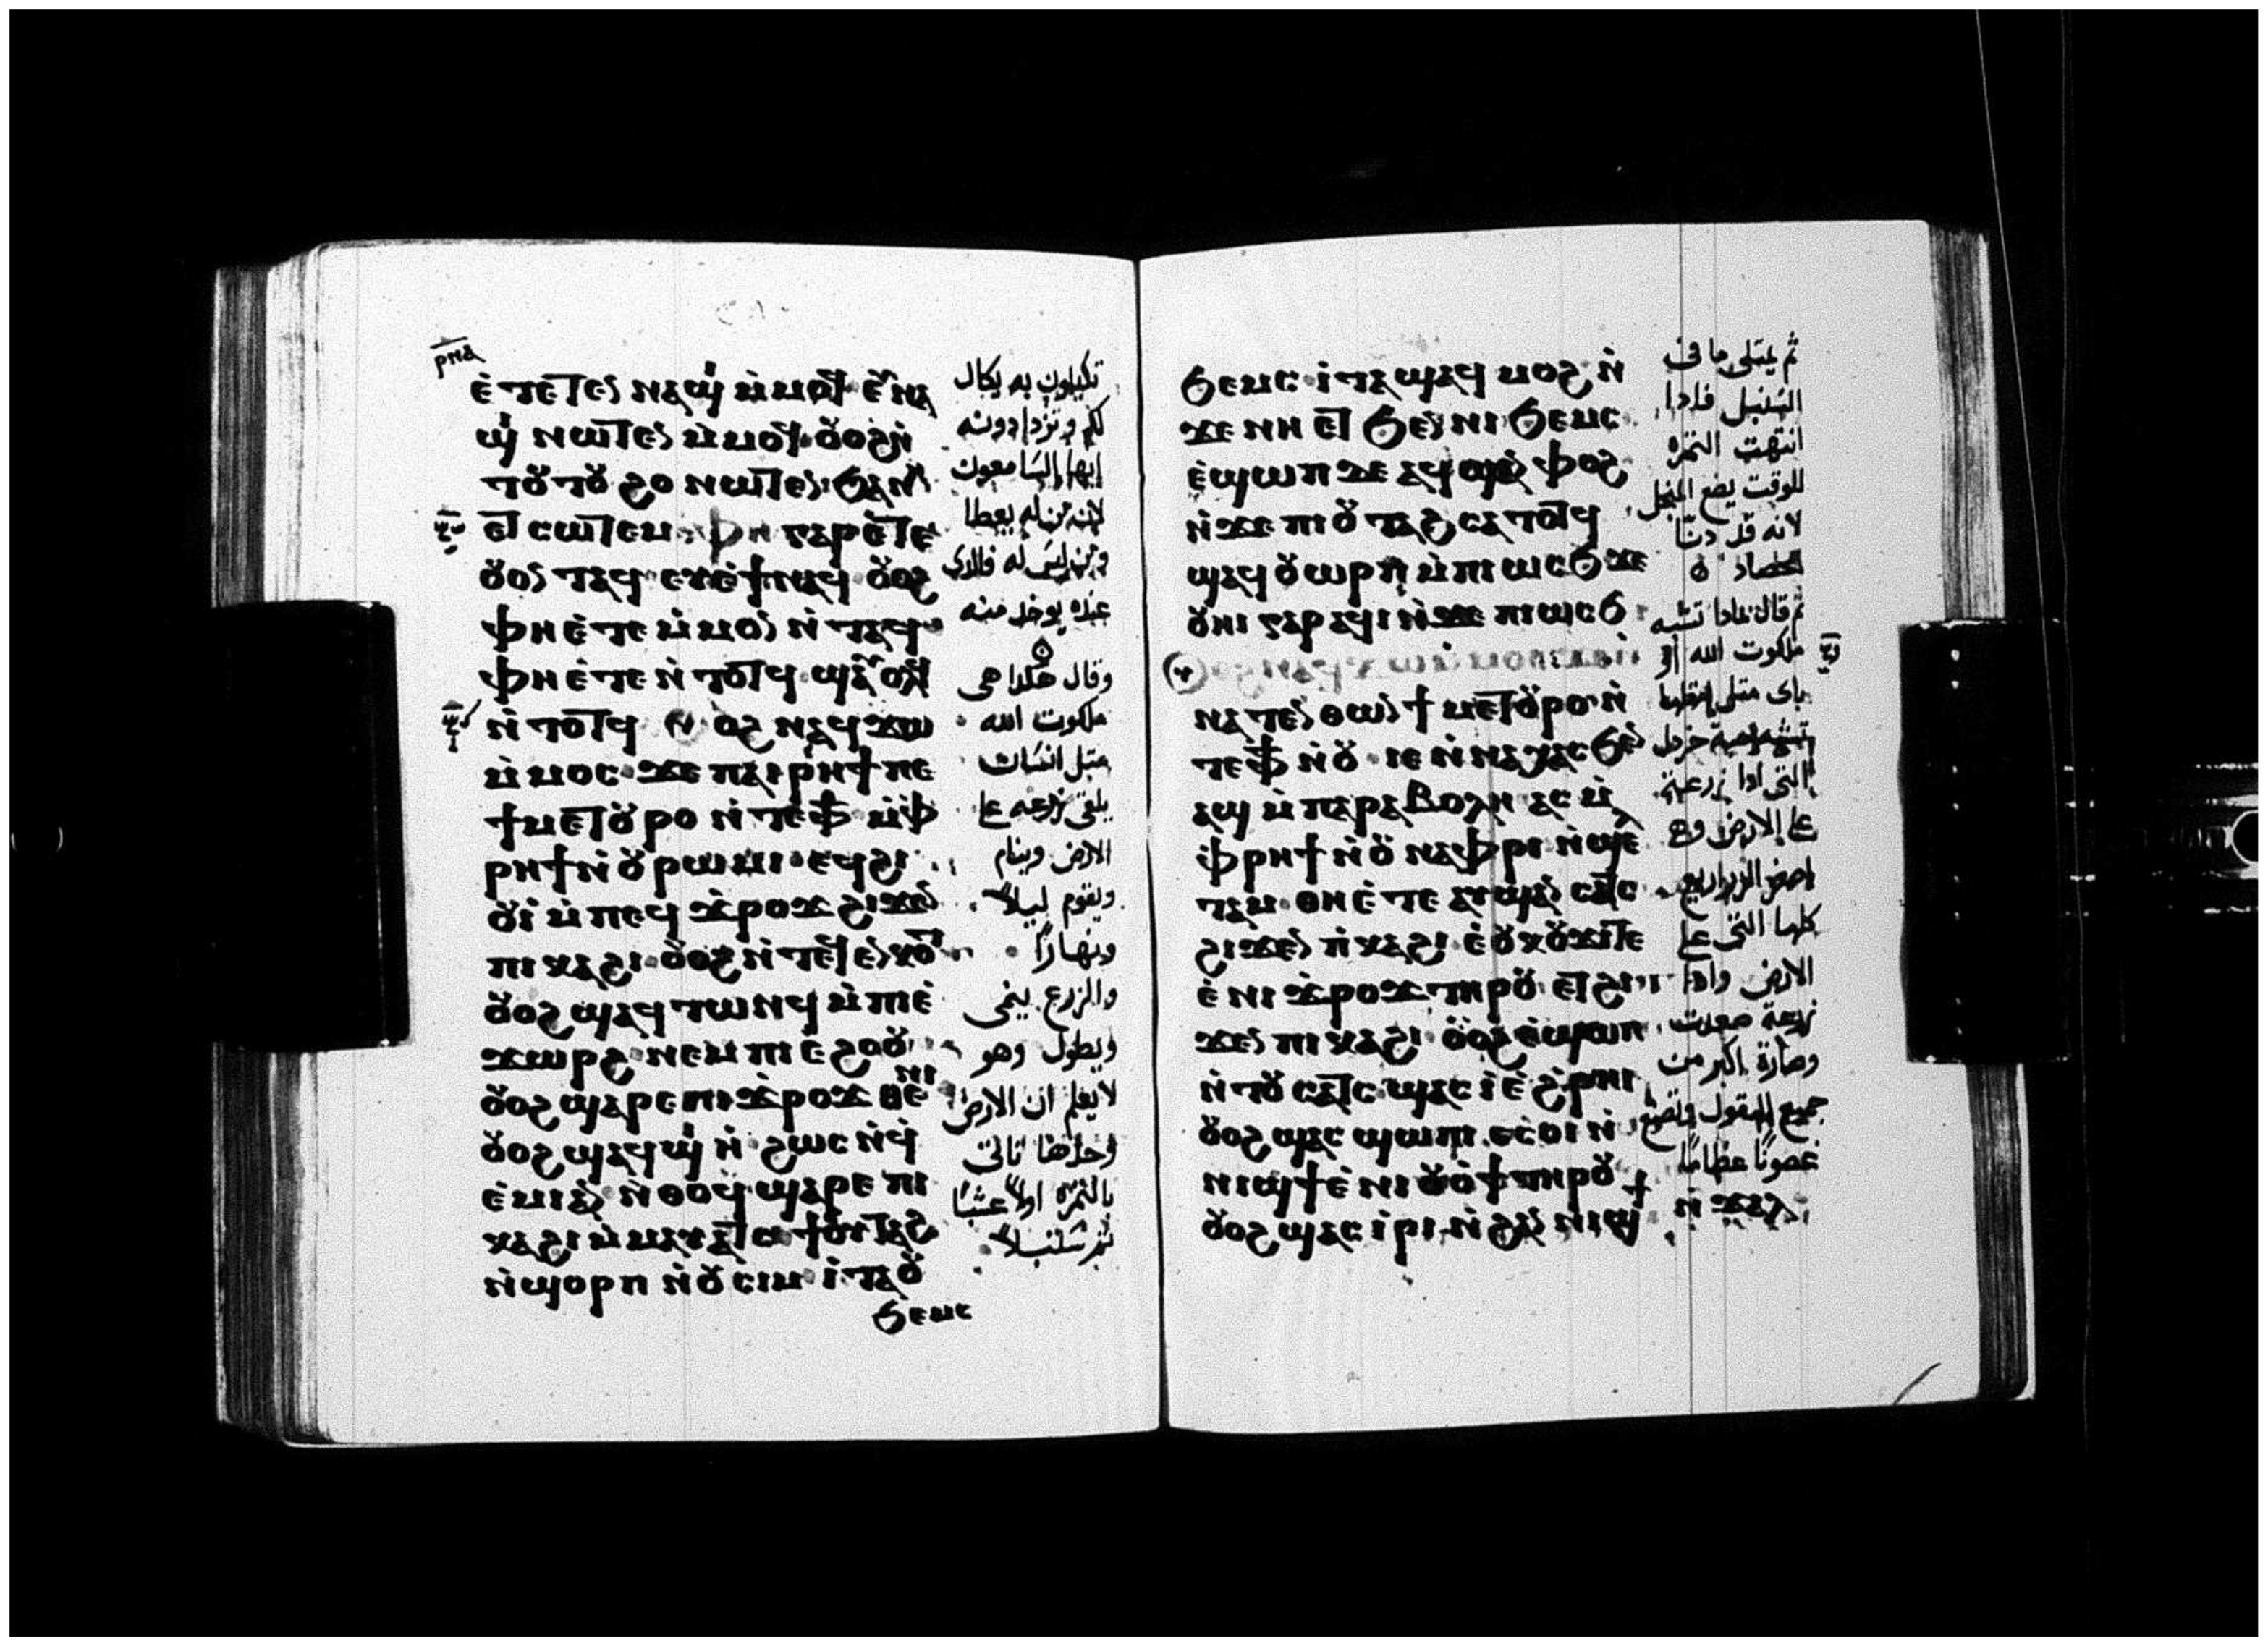 ⲣⲛⲁ
ⲉ̀ⲧⲉⲧⲉⲛⲛⲁϣⲓ ⲙ̀ⲙⲟϥ ⲉⲩⲛⲁ
ϣⲓ ⲛⲱⲧⲉⲛ ⲙ̀ⲙⲟϥ ⲟⲩⲟϩ ⲛ̀
ⲥⲱⲧⲉⲙ ⲫⲏ ⲅⲁⲣ ⲉⲧⲉ
ⲟⲩⲟⲛ ⲧⲁϥ ⲉⲩⲉ̀ϯ ⲛⲁϥ ⲟⲩⲟϩ
ⲫⲏ ⲉ̀ⲧⲉ ⲙ̀ⲙⲟⲛ ⲛ̀ⲧⲁϥ
ⲫⲏ ⲉ̀ⲧⲉ ⲛ̀ⲧⲟⲧϥ ⲥⲉⲛⲁⲟⲗϥ
ⲛ̀ⲧⲟⲧϥ ⲟⲩⲟϩ ⲛⲁϥϫⲱ
ⲙ̀ⲙⲟⲥ ϫⲉ ⲡⲁⲓⲣⲏϯ ⲡⲉ
ϯⲙⲉⲧⲟⲩⲣⲟ ⲛ̀ⲧⲉ ⲫϯ ⲙ̀ⲫ
ⲣⲏϯ ⲛ̀ⲟⲩⲣⲱⲙⲓ ⲉϥϩⲓ
ⲟⲩⲓ̀ ⲙ̀ⲡⲉϥϫ̀ⲣⲟϫ ϩⲓϫⲉⲛ
ⲡⲓⲕⲁϩⲓ ⲟⲩⲟϩ ⲛ̀ⲧⲉϥⲉⲛⲕⲟⲧ
ⲟⲩⲟϩ ϣⲁϥⲧⲱⲛϥ ⲙ̀ⲡⲓⲉ̀
ϫⲱⲣϩ ⲛⲉⲙ ⲡⲓⲉ̀ϩⲟⲟⲩ
ⲟⲩⲟϩ ϣⲁⲣⲉ ⲡⲓϫ̀ⲣⲟϫ
ⲟⲩⲟϩ ϣⲁϥϣⲓⲏ ϩⲱⲥ ⲛ̀ϥ̀
ⲉ̀ⲙⲓ ⲁⲛ ⲛ̀ⲑⲟϥ ϣⲁⲣⲉ ⲡⲓ
ⲕⲁϩⲓ ⲙ̀ⲙⲁⲩⲁⲧϥ ϯⲟⲩⲧⲁϩ
ⲛ̀ϣⲟⲣⲡ ⲛ̀ⲟⲩⲥⲓⲙ ⲓⲧⲁ ⲟⲩ
ϧⲉⲙⲥ
تكيلون به يكال
لكم وتزدادونه
ايها السامعون
لانه من له يعطا
ومن ليس له فالذى
عنده يوخد منه
وقال هكدا هى
ملكوت الله
مثل انسان
يلقى زرعه على
الارض وينام
ويقوم ليلاً
ونهاراً
والزرع ينمى
ويطول وهو
لا يعلم ان الارض
وحدها تاتى
بالثمرة اولاً عشباً
ثم سنبلاً
ϧⲉⲙⲥ ⲓⲧⲁ ϣⲁϥⲙⲟϩ ⲛ̀
ϫⲉ ⲛⲏ ⲉⲧϧⲉⲛ ⲛⲓϧⲉⲙⲥ
ⲉ̀ϣⲱⲡ ϫⲉ ⲁϥϣⲁⲛⲫⲟϩ
ⲛ̀ϫⲉ ⲡⲓⲟⲩⲧⲁϩ ⲥⲁⲧⲟⲧϥ
ϣⲁϥⲟⲩⲱⲣⲡ ⲙ̀ⲡⲓⲱⲥϧ ϫⲉ
ⲟⲩⲏⲓ ⲅⲁⲣ ⲁϥⲓ ⲛ̀ϫⲉ ⲡⲓⲱⲥϧ
ⲛⲁⲧⲉⲛⲑⲱⲛ ϯⲙⲉⲧⲟⲩⲣⲟ ⲛ̀
ⲧⲉ ⲫϯ ⲛ̀ⲟⲩ ⲓⲉ ⲛ̀ⲛⲁⲭⲁⲥ ϧⲉⲛ
ⲁϣ ⲙ̀ⲡⲁⲣⲁⲃⲟⲗⲏ ⲁⲥⲙ̀
ⲫ̀ⲣⲏϯ ⲛ̀ⲟⲩⲛⲁⲫⲣⲓ ⲛ̀ϣⲉⲗ
ⲧⲁⲙ ⲑⲏ ⲉ̀ⲧⲉ ⲁⲩϣⲁⲛⲥⲁⲧⲥ
ϩⲓϫⲉⲛ ⲡ̀ⲕⲁϩⲓ ⲉ̀ⲟⲩⲕⲟⲩϫⲓ ⲧⲉ
ⲉ̀ⲛⲓϫ̀ⲣⲟϫ ⲧⲏⲣⲟⲩ ⲉⲧϩⲓ
ϫⲉⲛ ⲡⲓⲕⲁϩⲓ ⲟⲩⲟϩ ⲉ̀ϣⲱⲡ
ⲛ̀ⲧⲟⲩⲥⲁⲧⲥ ϣⲁⲥⲓ̀ ⲉ̀ϩ̀ⲣⲏⲓ
ⲟⲩⲟϩ ϣⲁⲥϣⲱⲡⲓ ⲉⲥⲟⲓ ⲛ̀
ⲛⲓϣϯ ⲉ̀ⲛⲓⲟⲩⲟϯ ⲧⲏⲣⲟⲩ
ⲟⲩⲟϩ ϣⲁⲥⲓ̀ⲣⲓ ⲛ̀ϩⲁⲛⲛⲓϣϯ
ⲛ̀ϫⲁⲗ
ثم يمتلى ما فى
السنبل فادا
انتهت الثمرة
للوقت يضع المنجل
لانه قد دنا
الحصاد
ثم قال بمادا تشبه
ملكوت الله او
باى مثل
تشبه حبة خردل
التى ادا زرعة
على الارض وهى
اصغر الزراريع
كلها التى على
الارض وادا
زرعة صعدت
وصارة اكبر من
جميع البقول وتصنع
غصوناً عظاماً